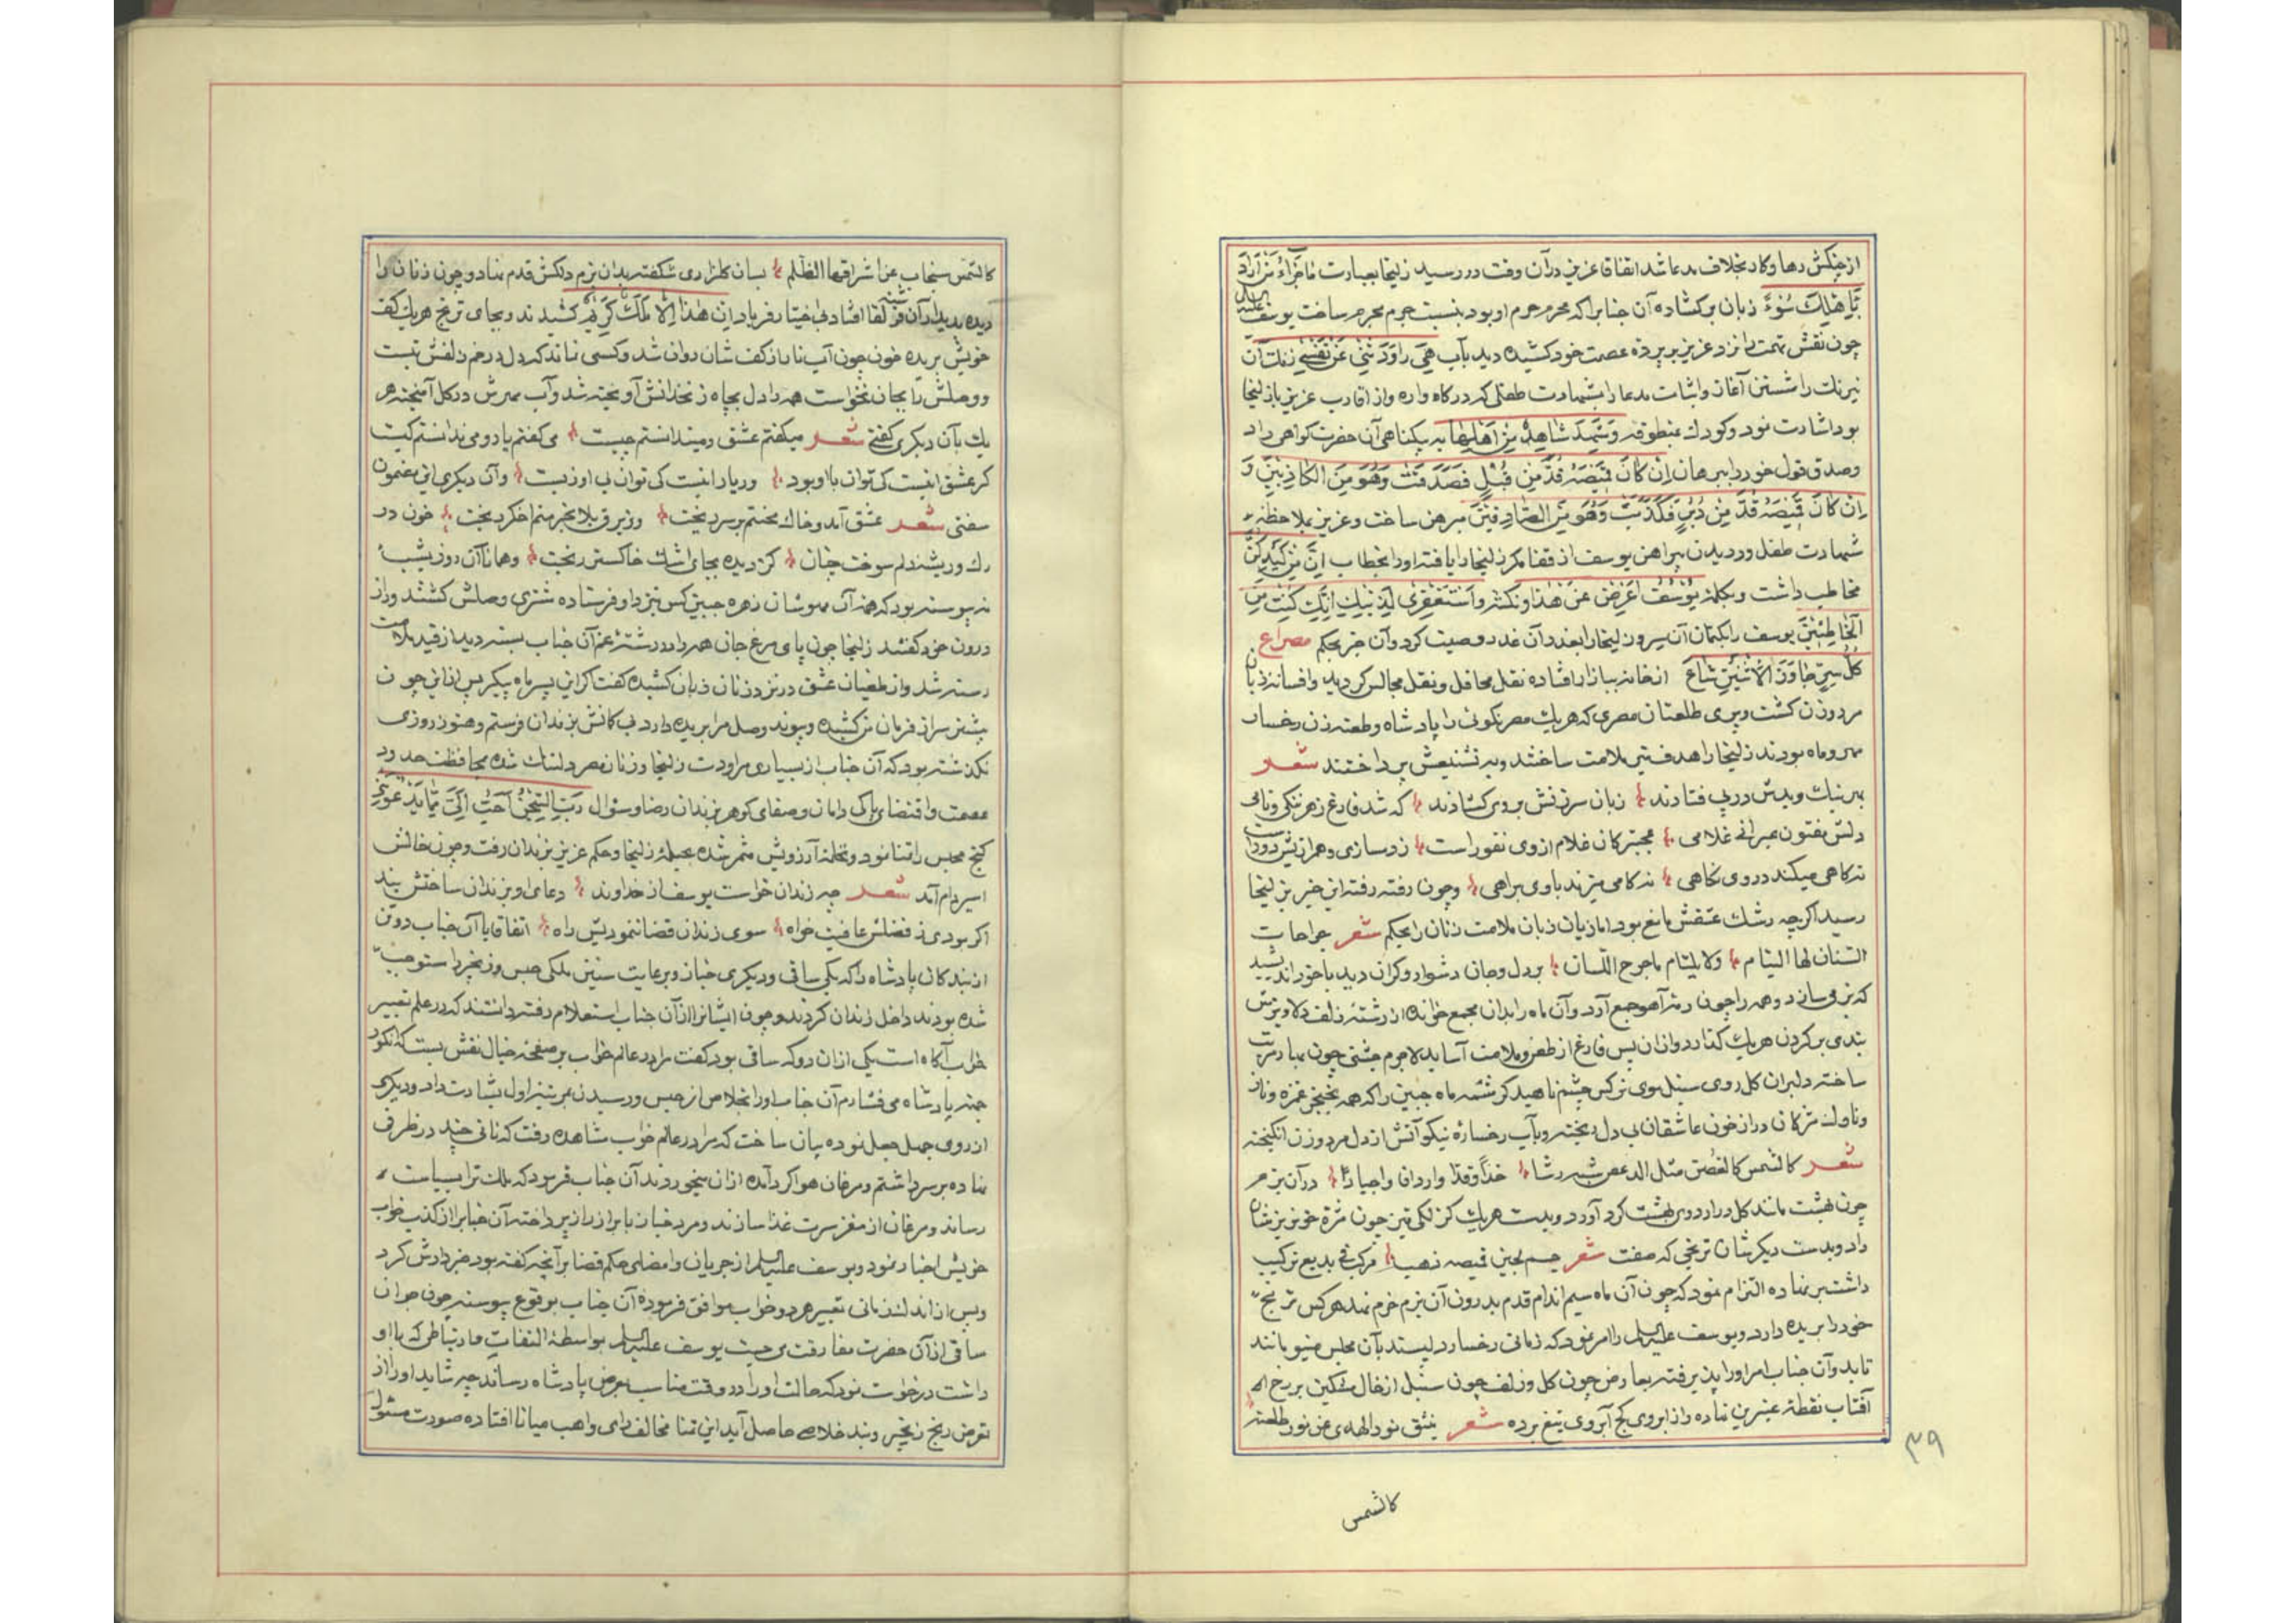 از چنکش رها و کار بخلاف مدعا شد اتفاقا عزیز در آن وقت در رسید زلیخا بعبارت مَا جَزَاءُ مَنْ اَرَادَ
بِاَهْلِكَ سُوْءً زبان برکشاده آن جنابرا که محرم حرم او بود بنسبت جرم مجرم ساخت یوسف علیه السلام
چون نقش تهمت را نزد عزیز بر پرده عصمت خود کشیده دید بآب هِیَ رَاوَدَتْنِی عَنْ نَفْسِی زنك آن
نیرنك را شستن آغاز و اثبات مدعا را بشهادت طفلی که در کاه واره و از اقارب عزیز یا زلیخا
بود اشارت نمود و کودك بمنطوقه وَشَهِدَ شَاهِدٌ مِنْ اَهْلِهَا به بیکناهی آن حضرت کواهی داد
و صدق قول خود را ببرهان اِنْ كَانَ قَمِیْصُهُ قُدَّ مِنْ قُبُلٍ فَصَدَقَتْ وَهُوَ مِنَ الْکَاذِبِیْنَ وَ
اِنْ کَانَ قَمِیْصُهُ قُدَّ مِنْ دُبُرٍ فَکَذَبَتْ وَهُوَ مِنَ الصَّادِقِیْنَ مبرهن ساخت و عزیز بملاحظه
شهادت طفل و دریدن پیراهن یوسف از قفا مکر زلیخا را یافته او را بخطاب اِنَّهُ مِنْ کَیْدِکُنَّ
مخاطب داشت و بکلمه یُوْسُفُ اَعْرِضْ عَنْ هٰذَا ونکته وَاسْتَغْفِرِی لِذَنْبِكِ اِنَّكِ کُنْتِ مِنَ
الْخَاطِئِیْنَ یوسف را بکتمان آن سر و زلیخا را بعذر آن غدر وصیت کرد و آن خبر بحکم مصراع
کُلُّ سِرٍّ جَاوَزَ الْاِثْنَیْنِ شَاعَ از خانه ببازار افتاده نقل محافل و نقل مجالس کردید و افسانه زبان
مرد و زن کشت و پری طلعتان مصری که هریك مصر نکوئی را پادشاه و طعنه زن رخسار
مهر و ماه بودند زلیخا را هدف تیر ملامت ساختند و به تشنیعش پرداختند شعر
بهر نیك و بدش در پی فتادند زبان سرزنش بر وی کشادند که شد فارغ زهر ننکی و نامی
دلش مفتون عبرانی غلامی عجبتر کان غلام از وی نفور است ز دمسازی و همرازیش دور است
نه کاهی میکند در وی نکاهی نه کامی میزند با وی براهی و چون رفته رفته این خبر بزلیخا
رسید اکرچه رشك عشقش مانع بود اما زیان زبان ملامت زنان را بحکم شعر جراحات
السنان لها التیام ولا یلتام ما جرح اللسان بر دل و جان دشوار و کران دید با خود اندیشید
که بزمی سازد و همه را چون رمه آهو جمع آرد و آن ماه را بدان مجمع خوانده از رشته زلف دلاویزش
بندی بر کردن هریك کذارد و ازان پس فارغ از طعن و ملامت آساید لاجرم جشنی چون بهار مرتب
ساخته دلبران کل روی سنبل موی نرکس چشم ناهید کرشمه ماه جبین را که همه بخنجر غمزه و ناز
و ناوك مژکان دراز خون عاشقان بی دل ریخته و بآب رخساره نیکو آتش از دل مرد و زن انکیخته
شعر کالشمس کالغصن مثل الدعص شبه رشا خدا و قدا و اردافا و اجیادا در آن بزم
چون بهشت مانند کل در اردوی بهشت کرد آورد و بدست هریك کزلکی تیز چون مژه خونریزشان
داد و بدست دیکرشان ترنجی که صفت شعر جسم لجین قمیصه ذهب مرکب فی بدیع ترکیب
داشت بر نهاده التزام نمود که چون آن ماه سیم اندام قدم بدرون آن بزم خرم نهد هرکس ترنج
خود را بریده دارد و یوسف علیه السلم را امر نمود که زمانی رخسار دلپسند بآن مجلس مینو مانند
تابد و آن جناب امر او را پذیرفته بعارض چون کل و زلف چون سنبل از خال مشکین بر رخ
آفتاب نقطه عنبرین نهاده و از ابروی کج آبروی تیغ برده شعر ینشق نور الهدی عن نور طلعته
۳۹
کالشمس
کالشمس ینجاب عن اشراقها الظلم بسان کلزاری شکفته بدان بزم دلکش قدم نهاد و چون زنان را
دیده بدیدار آن فرشته لقا افتاد بی اختیار فریاد اِنْ هٰذَا اِلَّا مَلَكٌ کَرِیْمٌ کشیدند و بجای ترنج هریك کف
خویش بریده خون چون آب ناب از کف شان روان شد و کسی نماند که دل در خم زلفش نبست
و وصلش را بجان نخواست همه را دل بچاه زنخدانش آویخته شد و آب مهرش در کل آمیخته هر
یك بآن دیکری کفتی شعر میکفتم عشق و میندانستم چیست می کفتم یار و می ندانستم کیست
کر عشق اینست کی توان با او بود ور یار اینست کی توان بی او زیست و آن دیکری این مضمون
سفتی شعر عشق آمد و خاك محنتم بر سر ریخت وز برق بلا بخرمنم اخکر ریخت خون در
رك و ریشه دلم سوخت چنان کز دیده بجای اشك خاکستر ریخت و همانا آن روز بشب
نه پیوسته بود که همه آن مهوشان زهره جبین کس نزد او فرستاده مشتری وصلش کشتند و راز
درون خود کفتند زلیخا چون پای مرغ جان همه را در رشته غم آن جناب بسته دید از قید ملامت
رسته شد و از طغیان عشق در نزد زنان زبان کشیده کفت کر این پسر ماه پیکر پس از این چون
پیشتر سر از فرمان من کشیده و پیوند وصل مرا بریده دارد بی کمانش بزندان فرستم و هنوز روزی
نکذشته بود که آن جناب از بسیاری مراودت زلیخا و زنان مصر دلتنك شده بمحافظت حدود
عصمت و اقتضای پاکی دامان و صفای کوهر بزندان رضا و سؤال رَبِّ السِّجْنُ اَحَبُّ اِلَیَّ مِمَّا یَدْعُوْنَنِی
کنج محبس را تمنا نمود و نخله آرزویش مثمر شده بحیله زلیخا و حکم عزیز بزندان رفت و چون خالش
اسیر دام آمد شعر چه زندان خواست یوسف از خداوند دعای او بزندان ساختش بند
اکر بودی ز فضلش عافیت خواه سوی زندان قضا ننمودیش راه اتفاقا با آن جناب دو تن
از بندکان پادشاه را که یکی ساقی و دیکری خباز و برعایت سنن ملکی حبس و زنجیر را مستوجب
شده بودند داخل زندان کردند و چون ایشانرا از آن جناب استعلام رفته دانستند که در علم تعبیر
خواب آکاه است یکی از ان دو که ساقی بود کفت مرا در عالم خواب بر صفحه خیال نقش بست که انکور
جهته پادشاه می فشارم آن جناب او را بخلاص از حبس و رسیدن بمرتبه اول بشارت داد و دیکری
از روی جهل جعل نموده بیان ساخت که مرا در عالم خواب مشاهده رفت که نانی چند در ظرفی
نهاده بر سر داشتم و مرغان هوا کرد آمده ازان میخوردند آن جناب فرمود که ملك ترا بسیاست
رساند و مرغان از مغز سرت غذا سازند و مرد خباز بابراز راز پرداخته آن جنابرا از کذب خواب
خویش اخبار نمود و یوسف علیه السلم از جریان و امضای حکم قضا بر آنچه کفته بود خبر دارش کرد
و پس از اندك زمانی تعبیر هر دو خواب موافق فرموده آن جناب بوقوع پیوسته چون جوان
ساقی از آن حضرت مفارقت می جست یوسف علیه السلم بواسطه التفات و ارتباطی که با او
داشت درخواست نمود که حالت او را در وقت مناسب بعرض پادشاه رساند چه شاید او را از
تعرض رنج زنجیر و بند خلاصی حاصل آید این تمنا مخالف رای واهب میانا افتاده صورت مسئول